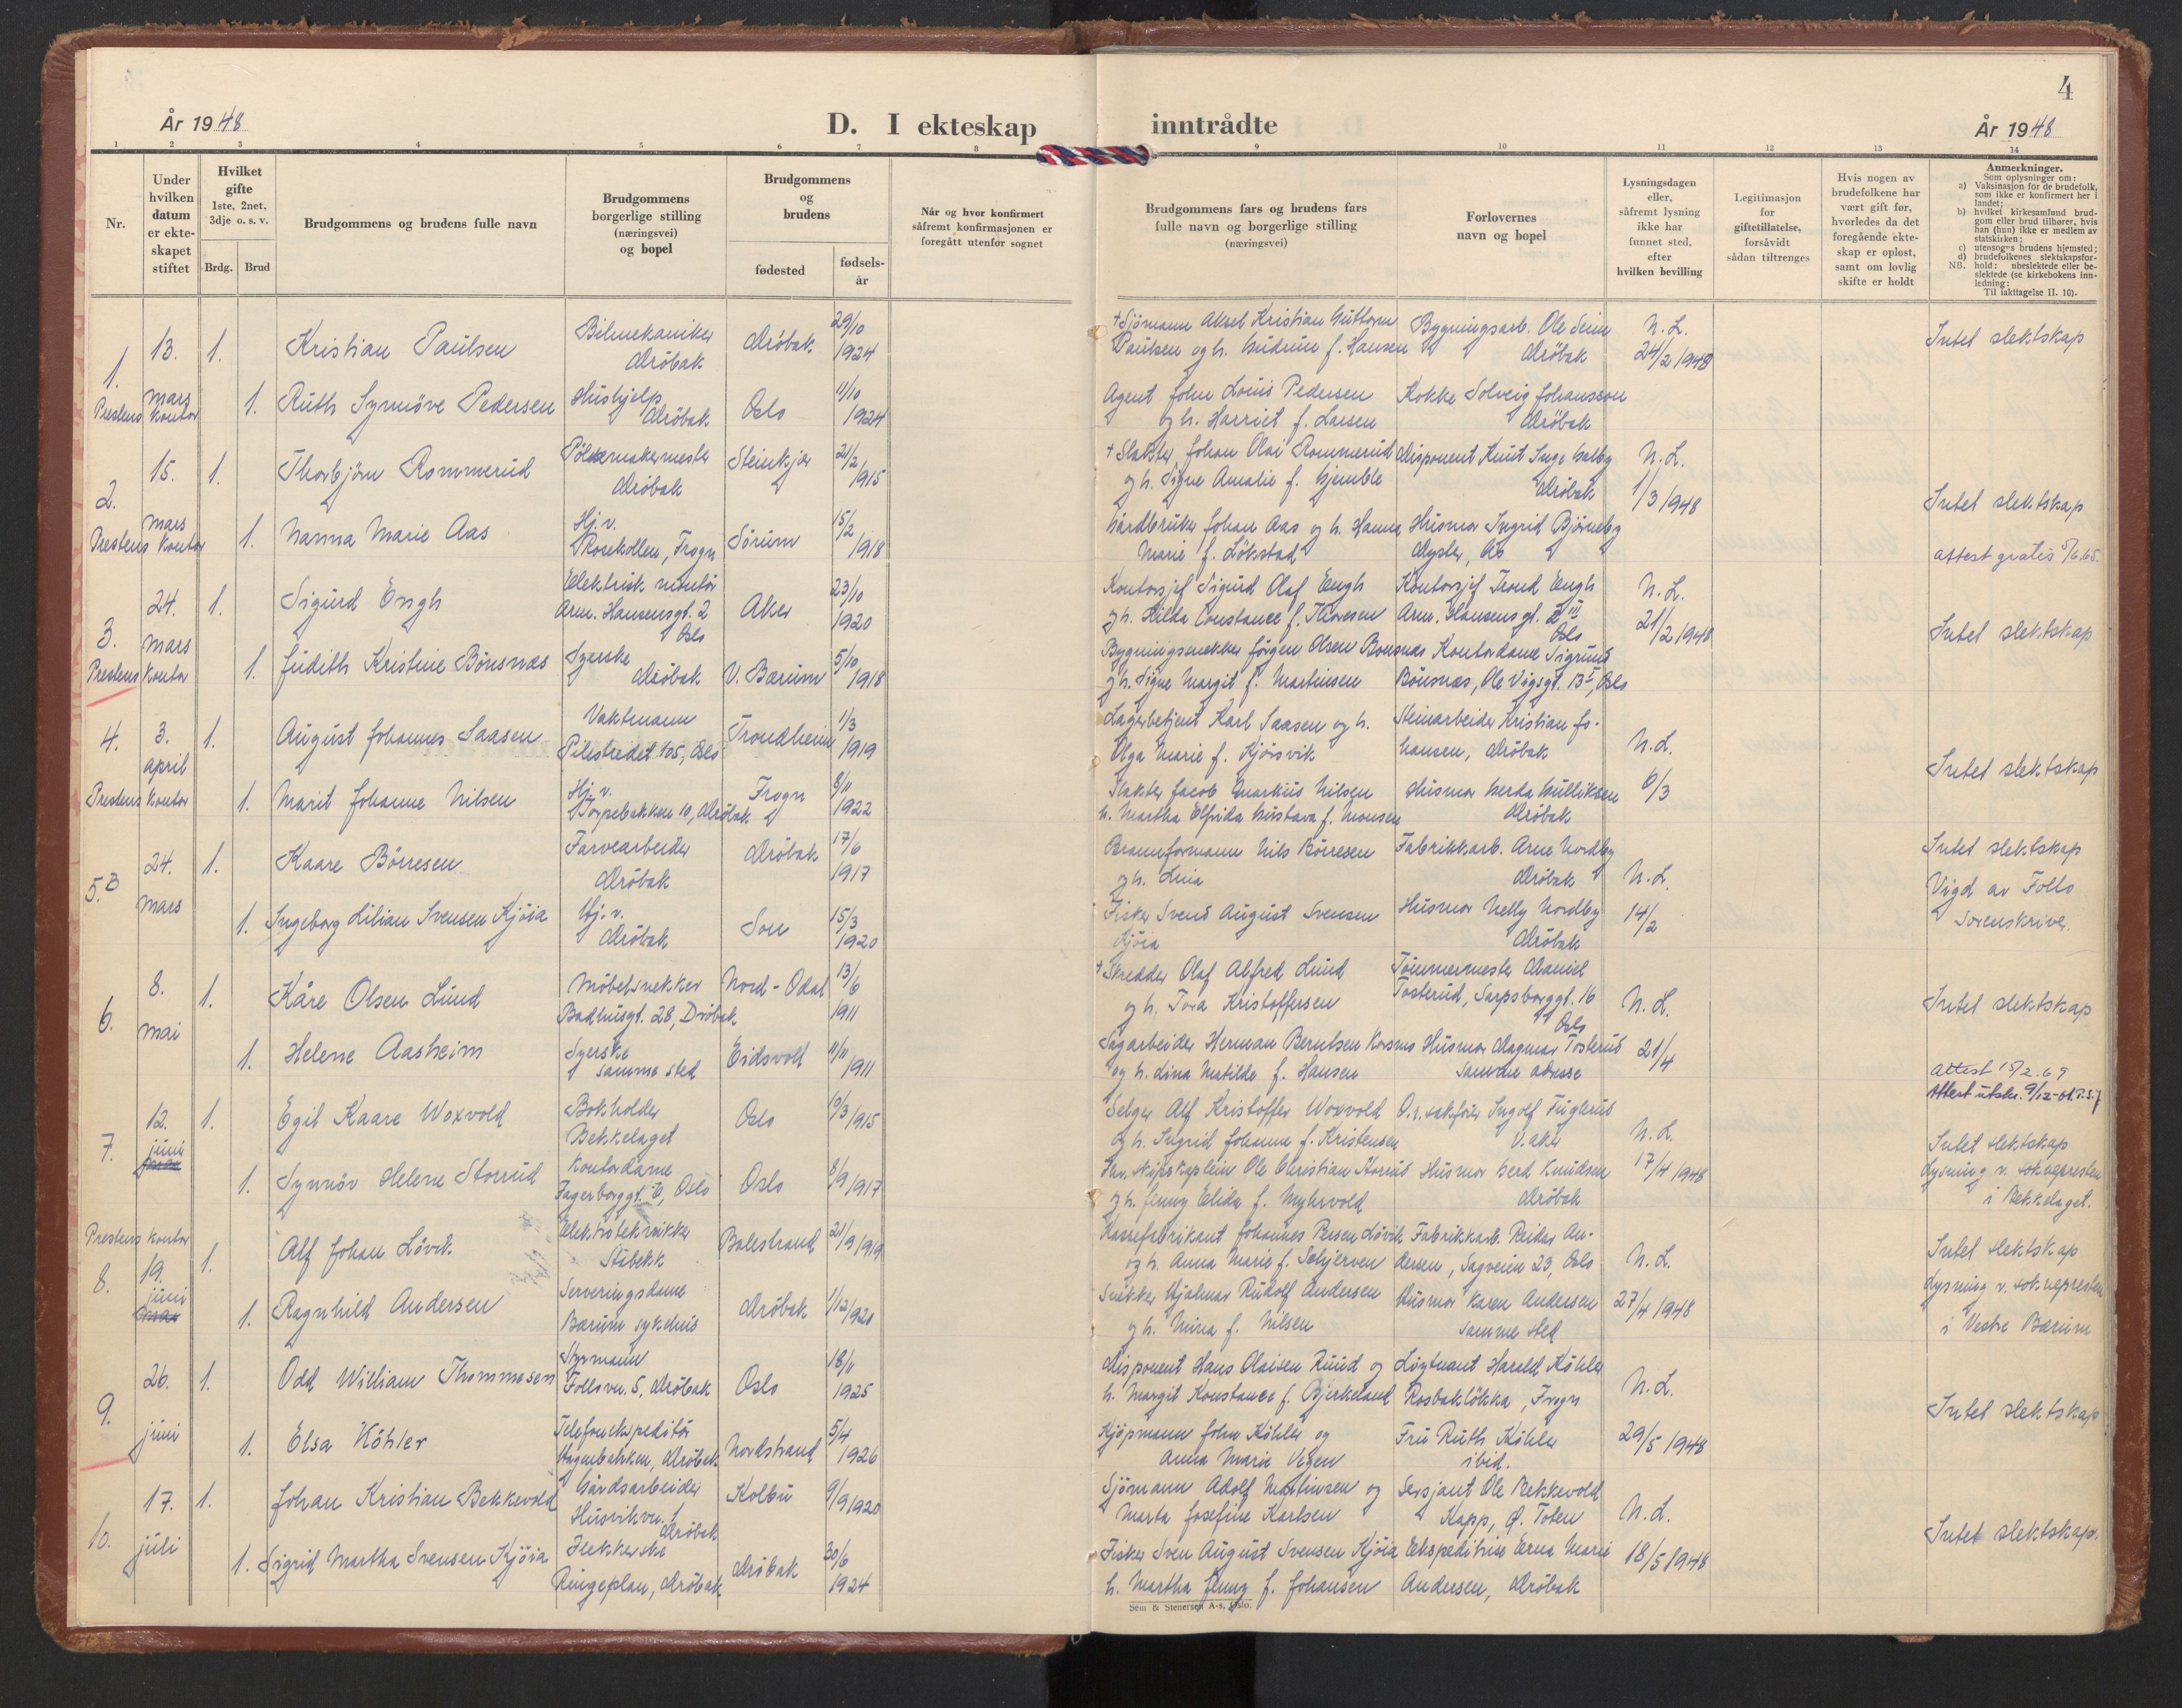 4
År 1948
D. I ekteskap inntrådte
År 1948
1 2 3 4 5 6 7 8 9 10 11 12 13 14
Nr.
Under hvilken datum er ekte-skapet stiftet
Hvilket gifte 1ste, 2net, 3dje o. s. v.
Brdg. Brud
Brudgommens og brudens fulle navn
Brudgommens borgerlige stilling (næringsvei) og bopel
Brudgommens og brudens
fødested
fødsels-år
Når og hvor konfirmert såfremt konfirmasjonen er foregått utenfor sognet
Brudgommens fars og brudens fars fulle navn og borgerlige stilling (næringsvei)
Forlovernes navn og bopel
Lysningsdagen eller, såfremt lysning ikke har funnet sted, efter hvilken bevilling
Legitimasjon for giftetillatelse, forsåvidt sådan tiltrenges
Hvis nogen av brudefolkene har vært gift før, hvorledes da det foregående ekte-skap er opløst, samt om lovlig skifte er holdt
Anmerkninger.
Som oplysninger om:
a) Vaksinasjon for de brudefolk, som ikke er konfirmert her i landet;
b) hvilket kirkesamfund brud-gom eller brud tilhører, hvis han (hun) ikke er medlem av statskirken;
c) utensogns brudens hjemsted;
d) brudefolkenes slektskapsfor-hold: ubeslektede eller be-slektede (se kirkebokens inn-ledning:
NB. Til iakttagelse II. 10).
1. 13. mars Prestens kontor
1. Kristian Paulsen
Bilmekaniker Drøbak
Drøbak 29/10 1924
+ Sjömann Aksel Kristian Guttorm Paulsen og h. Gudrun f. Hansen
Bygningsarb. Ole Seim Drøbak
N.L. 24/2 1948
Intet slektskap
1. Ruth Synnöve Pedersen
Hushjelp Drøbak
Oslo 11/10 1924
Agent John Louis Pedersen og h. Harriet f. Larsen
Kokke Solveig Johansson Drøbak
2. 15. mars Prestens kontor
1. Thorbjörn Rommerud
Pölsemakermester Drøbak
Steinkjer 21/2 1915
+ Slakter Johan Olai Rommerud og h. Signe Amalie f. Gjemble
Disponent Knut Inge Dalby Drøbak
N.L. 1/3 1948
Intet slektskap
1. Nanna Marie Aas
Hj.v. Rosekollen, Frogn
Sörum 15/2 1918
Gårdbruker Johan Aas og h. Hanna Marie f. Lökstad
Husmor Ingrid Björneby Dyster, Ås
attest gratis 5/6.65.
3. 24. mars Prestens kontor
1. Sigurd Engh
Elektrisk montör Arm. Hansensgt. 2 Oslo
Aker 23/10 1920
Kontorsjef Sigurd Olaf Engh og h. Hilda Constance f. Thoresen
Kontorsjef Trond Engh Arm. Hansens gt. 2 III Oslo
N.L. 21/2 1948
Intet slektskap
1. Judith Kristine Bönsnæs
Syerske Drøbak
V. Bærum 5/10 1918
Bygningssnekker Jörgen Olsen Bonsnæs og h. Signe Margit f. Martinsen
Kontordame Sigrund Bönsnæs, Ole Vigsgt. 13 I, Oslo
4. 3. april Prestens kontor
1. August Johannes Saasen
Vaktmann Pilestredet 105, Oslo
Trondheim 1/3 1919
Lagerbetjent Karl Saasen og h. Olga Marie f. Kjörsvik
Steinarbeider Kristian Jo-hansen, Drøbak
N.L. 6/3
Intet slektskap
1. Marit Johanne Nilsen
Hj.v. Torpebakken 10, Drøbak
Frogn 8/11 1922
Slakter Jacob Markus Nilsen h. Martha Elfrida Gustava f. Monsen
Husmor Gerda Gulliksen Drøbak
5.B 24. mars
1. Kaare Börresen
Farvearbeider Drøbak
Drøbak 17/6 1917
Brannformann Nils Börresen og h. Lina
Fabrikkarb. Arne Nordby Drøbak
N.L. 14/2
Intet slektskap Vigd av Follo Sorenskriver.
1. Ingeborg Lilian Svensen Kjöia
Hj.v. Drøbak
Son 15/3 1920
Fisker Svend August Svensen Kjöia
Husmor Nelly Nordby Drøbak
6. 8. mai
1. Kåre Olsen Lund
Möbelsnekker Badhusgt. 28, Dröbak
Nord-Odal 13/6 1911
+ Skredder Olaf Alfred Lund og h. Tora Kristoffersen
Tömmermester Daniel Tosterud, Sarpsborggt. 16 Oslo
N.L. 21/4
Intet slektskap
1. Helene Aasheim
Syerske samme sted
Eidsvoll 11/11 1911
Sagarbeider Herman Berntsen Korsmo og h. Lina Matilde f. Hansen
Husmor Dagmar Tosterud Samme adresse
attest 13/2.69
Attest utskr. 9/12-81.
7. 12. juni
1. Egil Kaare Woxvold
Bokholder Bekkelaget
Oslo 10/3 1915
Selger Alf Kristoffer Woxvold og h. Ingrid Johanne f. Kristensen
O.r.sakförer Ingolf Fuglerud V. Aker
N.L. 17/4 1948
Intet slektskap Lysning v. soknepresten i Bekkelaget.
1. Synnöv Helene Storrud
Kontordame Fagerborggt. 6, Oslo
Oslo 8/9 1917
Skipskaptein Ole Christian Storrud og h. Jenny Elida f. Myhrvold
Husmor Gerd Knudsen Drøbak
Prestens kontor
8. 19. juni
1. Alf Johan Lövik
Elektrotekniker Stabekk
Balestrand 21/9 1919
Kassefabrikant Johannes Persen Lövik og h. Anna Marie f. Schjerven
Fabrikkarb. Reidar An-dersen, Sagveien 23, Oslo
N.L. 27/4 1948
Intet slektskap Lysning v. soknepresten i Vestre Bærum
1. Ragnhild Andersen
Serveringsdame Bærum sykehus
Drøbak 1/12 1920
Snekker Hjalmar Rudolf Andersen og h. Nina f. Nilsen
Husmor Karen Andersen samme sted
9. 26. juni
1. Odd William Thommesen
Styrmann Follovn. 5, Drøbak
Oslo 18/11 1925
Disponent Hans Olaisen Ruud og h. Margit Konstance f. Bjerkeland
Löytnant Harald Köhler Rosbaklökka, Frogn
N.L. 29/5 1948
Intet slektskap
1. Elsa Köhler
Telefonekspeditör Hagenbakken, Drøbak
Nordstrand 5/4 1926
Kjöpmann John Köhler og Anna Marie Vegen
Fru Ruth Köhler ibid.
10. 17. juli
1. Johan Kristian Bekkevold
Gårdsarbeider Husvikvn. 1 Drøbak
Kolbu 9/9 1920
Sjömann Adolf Martinsen og Marta Josefine Karlsen
Sersjant Ole Bekkevold Kapp, Ø. Toten
N.L. 18/5 1948
Intet slektskap.
1. Sigrid Martha Svensen Kjöia
Ringeplan, Drøbak
Drøbak 30/6 1924
Fisker Sven August Svensen Kjöia h. Martha Jenny f. Johansen
Ekspeditrise Erna Marie Andersen, Drøbak
Sem & Stenersen A-s, Oslo.